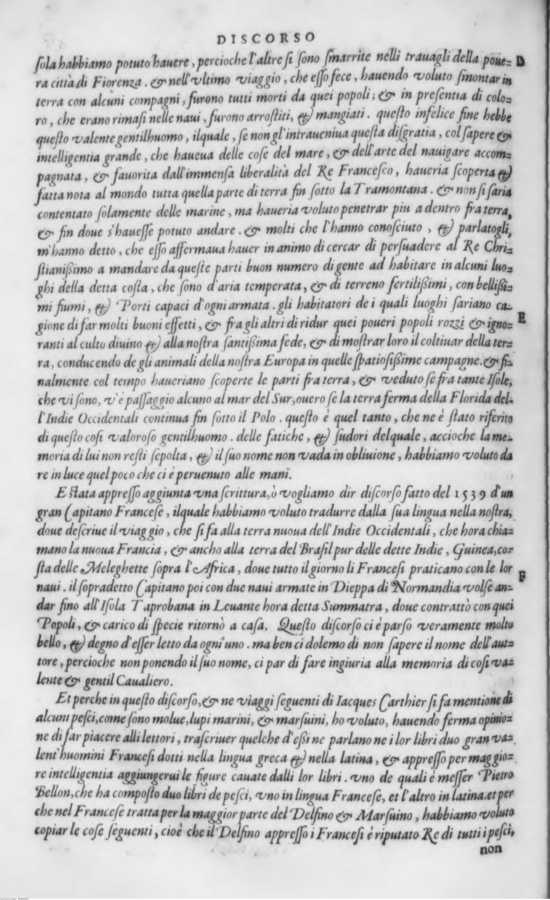 DISCORSO
sola habbiamo potuto hauere, percioche l'altre si sono smarrite nelli trauagli della poue- D
ra città di Fiorenza. & nell'vltimo viaggio, che esso fece, hauendo voluto smontar in
terra con alcuni compagni, furono tutti morti da quei popoli; & in presentia di colo-
ro, che erano rimasi nelle naui, furono arrostiti, & mangiati. questo infelice fine hebbe
questo valente gentilhuomo, ilquale, se non gl'intraueniua questa disgratia, col sapere &
intelligentia grande, che haueua delle cose del mare, & dell'arte del nauigare accom-
pagnata, & fauorita dall'immensa liberalità del Re Francesco, haueria scoperta &
fatta nota al mondo tutta quella parte di terra fin sotto la Tramontana. & non si saria
contentato solamente delle marine, ma haueria voluto penetrar piu a dentro fra terra,
& fin doue s'hauesse potuto andare. & molti che l'hanno conosciuto, & parlatogli,
m'hanno detto, che esso affermaua hauer in animo di cercar di persuadere al Re Chri-
stianissimo a mandare da queste parti buon numero di gente ad habitare in alcuni luo-
ghi della detta costa, che sono d'aria temperata, & di terreno fertilissimi, con bellissi-
mi fiumi, & Porti capaci d'ogni armata. gli habitatori de i quali luoghi sariano ca- E
gione di far molti buoni effetti, & fra gli altri di ridur quei poueri popoli rozzi & igno-
ranti al culto diuino & alla nostra santissima fede, & di mostrar loro il coltiuar della ter-
ra, conducendo de gli animali della nostra Europa in quelle spatiosissime campagne. & fi-
nalmente col tempo haueriano scoperte le parti fra terra, & veduto se fra tante Isole,
che vi sono, v'è passaggio alcuno al mar del Sur, ouero se la terra ferma della Florida del-
l'Indie Occidentali continua fin sotto il Polo. questo è quel tanto, che ne è stato riferito
di questo cosi valoroso gentilhuomo. delle fatiche, & sudori delquale, accioche la me-
moria di lui non resti sepolta, & il suo nome non vada in obliuione, habbiamo voluto da
re in luce quel poco che ci è peruenuto alle mani.
E stata appresso aggiunta vna scrittura, ò vogliamo dir discorso fatto del 1539 d'un
gran Capitano Francese, ilquale habbiamo voluto tradurre dalla sua lingua nella nostra,
doue descriue il viaggio, che si fa alla terra nuoua dell'Indie Occidentali, che hora chia-
mano la nuoua Francia, & ancho alla terra del Brasil pur delle dette Indie, Guinea, co-
sta delle Meleghette sopra l'Africa, doue tutto il giorno li Francesi praticano con le lor F
naui. il sopradetto Capitano poi con due naui armate in Dieppa di Normandia volse an-
dar fino all'Isola Taprobana in Leuante hora detta Summatra, doue contrattò con quei
Popoli, & carico di specie ritornò a casa. Questo discorso ci è parso veramente molto
bello, & degno d'esser letto da ogni'uno. ma ben ci dolemo di non sapere il nome dell'aut-
tore, percioche non ponendo il suo nome, ci par di fare ingiuria alla memoria di cosi va-
lente & gentil Caualiero.
Et perche in questo discorso, & ne viaggi seguenti di Iacques Carthier si fa mentione di
alcuni pesci, come sono molue, lupi marini, & marsuini, ho voluto, hauendo ferma opinio-
ne di far piacere alli lettori, trascriuer quelche d'essi ne parlano ne i lor libri duo gran va-
lent'huomini Francesi dotti nella lingua greca & nella latina, & appresso per maggio-
re intelligentia aggiungerui le figure cauate dalli lor libri. vno de quali è messer Pietro
Bellon, che ha composto duo libri de pesci, vno in lingua Francese, et l'altro in latina. et per
che nel Francese tratta per la maggior parte del Delfino & Marsuino, habbiamo voluto
copiar le cose seguenti, cioè che il Delfino appresso i Francesi è riputato Re di tutti i pesci,
non